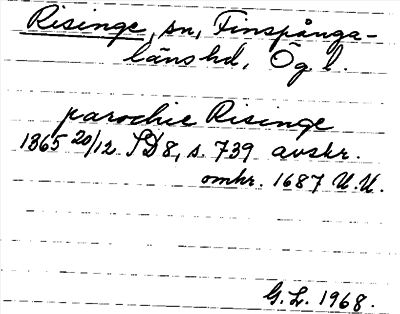 Risinge, sn, Finspånga-
läns hd, Ög l.
parochie Risinge
1365 20/12 SD8, s. 739 avskr.
omkr. 1687 U.U.
G.L. 1968.